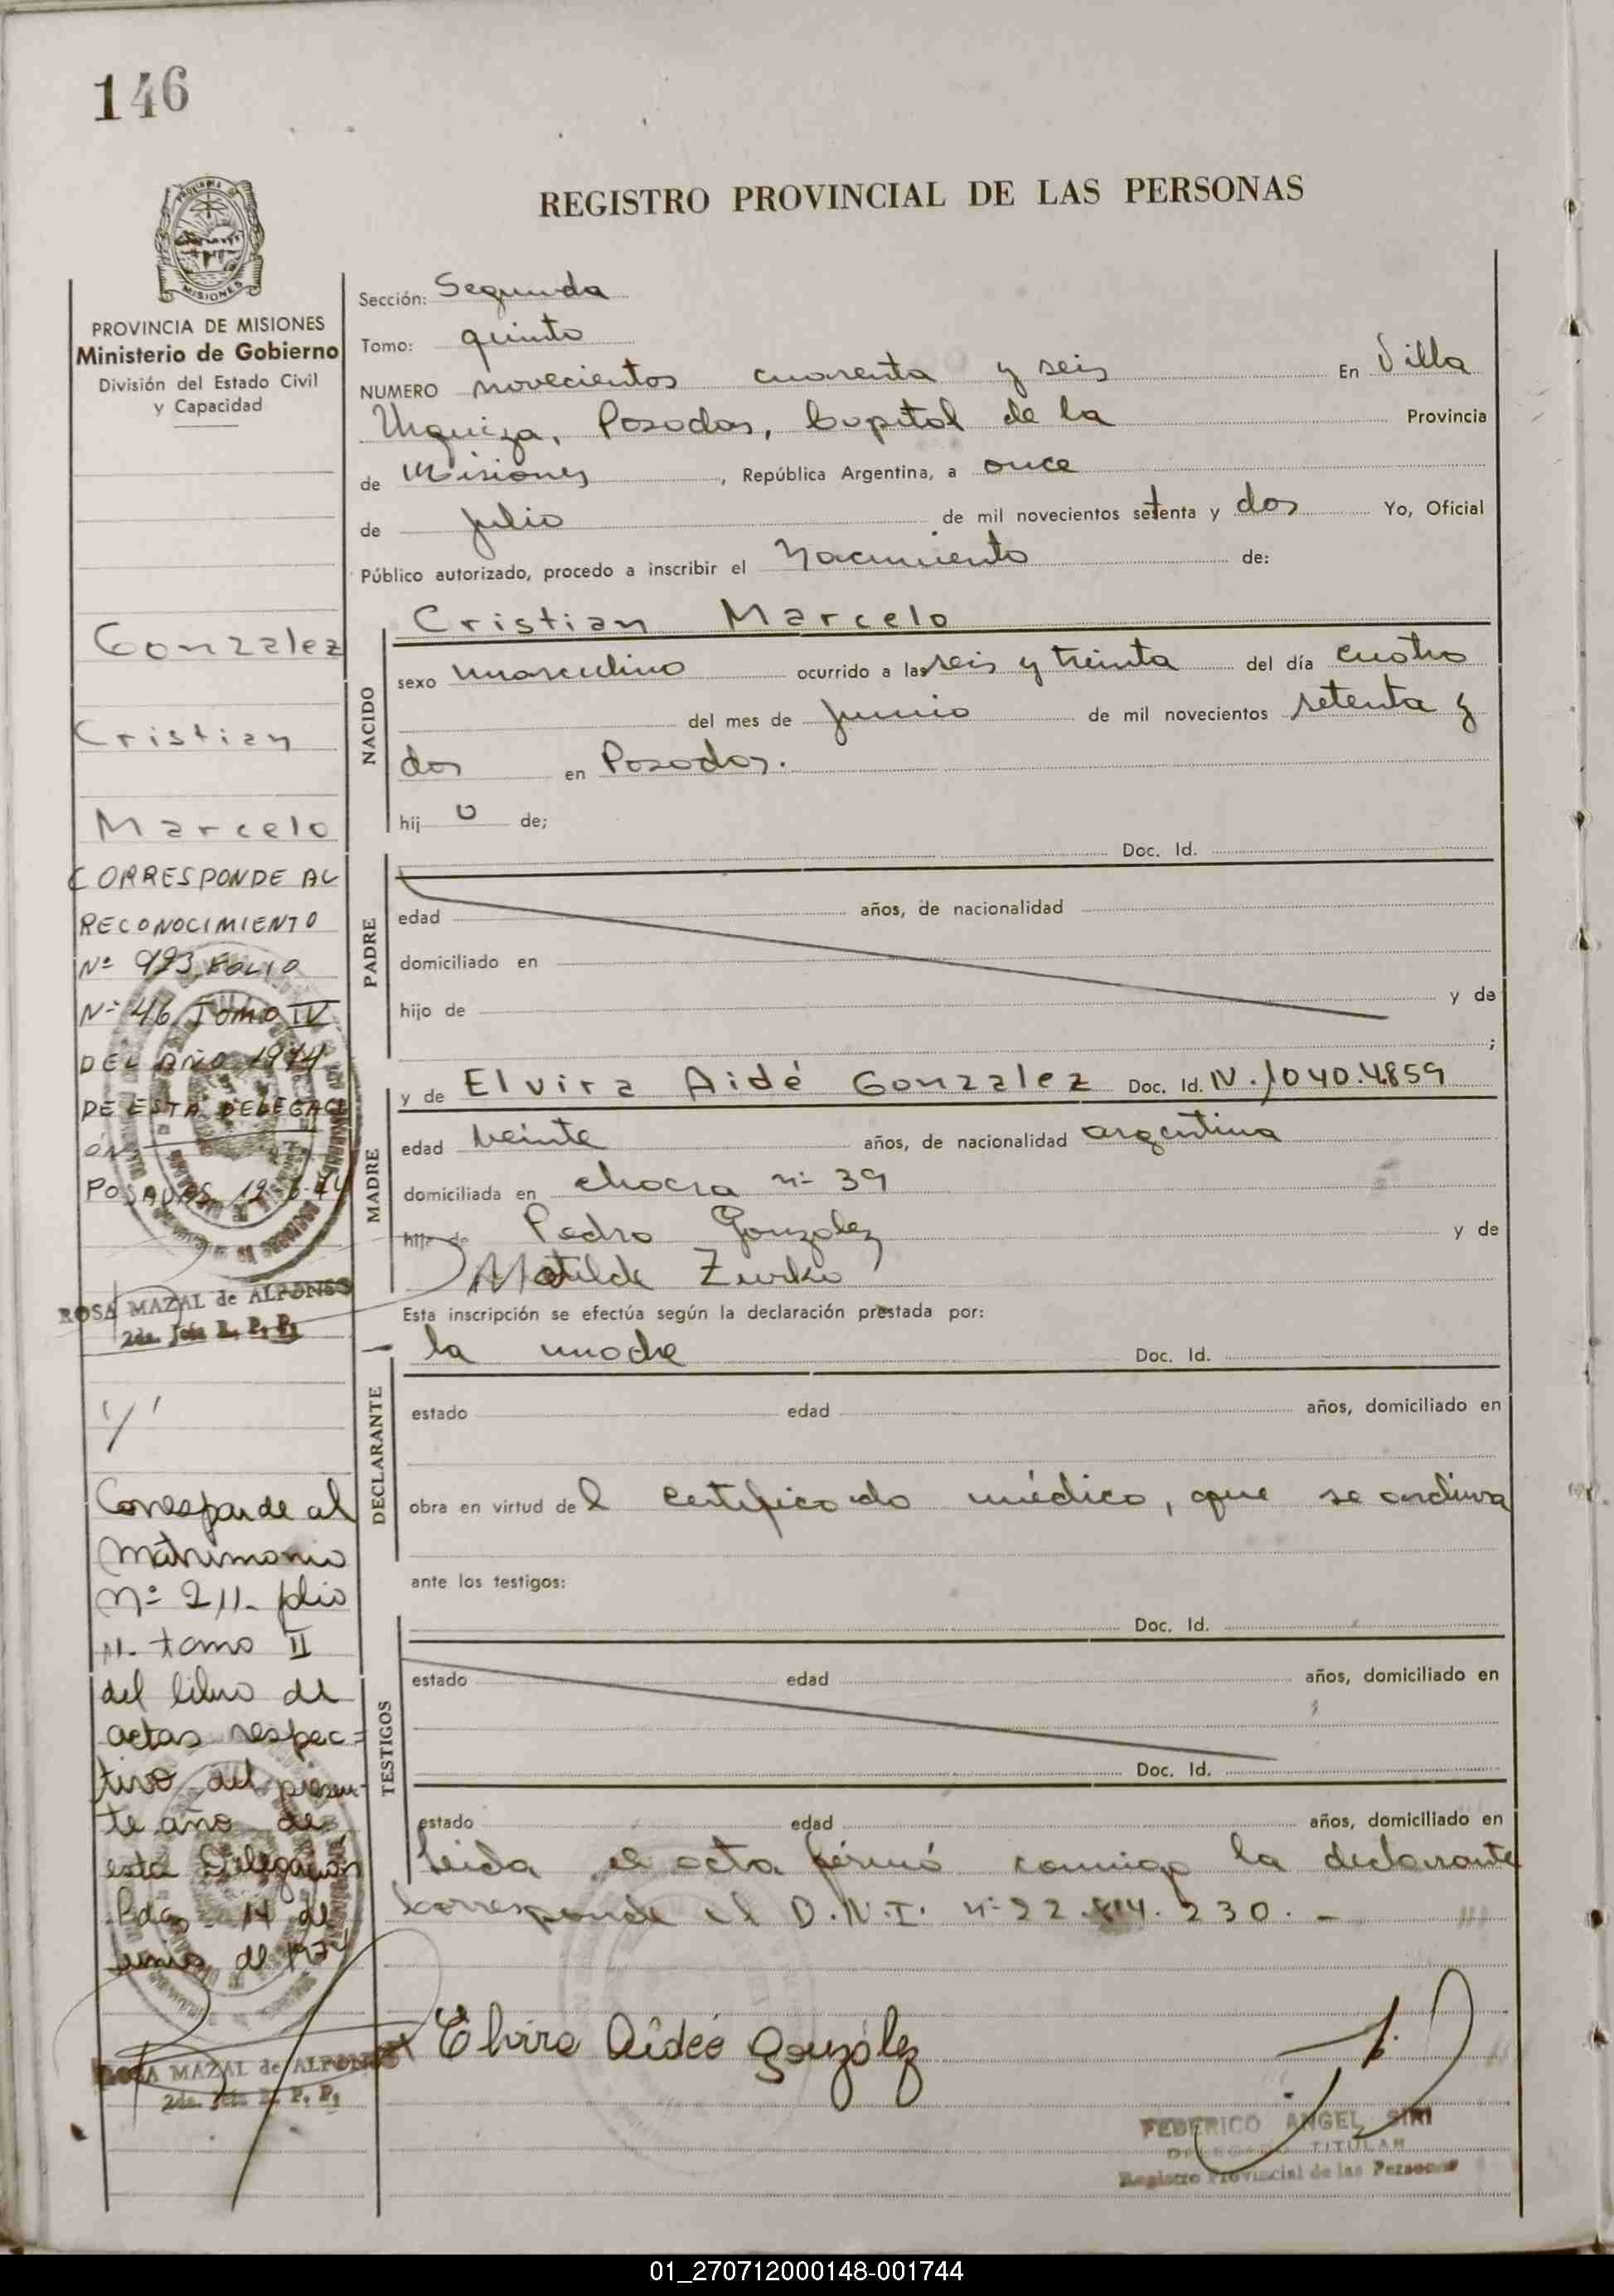 146
REGISTRO PROVINCIAL DE LAS PERSONAS
MISIONES
PROVINCIA DE MISIONES
Ministerio de Gobierno
División del Estado Civil
y Capacidad
Gonzalez
Cristian
Marcelo
CORRESPONDE AL
RECONOCIMIENTO
Nº 993 FOLIO
Nº 46 TOMO IV
DEL AÑO 1974
DE ESTA DELEGACI
ÓN
POSADAS, 12-6-74
ROSA MAZAL de ALFONSO
2da. Jefe R. P. P.
Corresponde al
Matrimonio
Nº 211- folio
11- tomo II
del libro de
actas respec=
tivo del presen-
te año de
esta Delegación
Pdas 14 de
junio de 1974
ROSA MAZAL de ALFONSO
2da. Jefe R. P. P.
Sección: Segunda
Tomo: quinto
NUMERO novecientos cuarenta y seis En Villa
Urquiza, Posadas, Capital de la Provincia
de Misiones, República Argentina, a once
de Julio de mil novecientos setenta y dos Yo, Oficial
Público autorizado, procedo a inscribir el Nacimiento de:
NACIDO
Cristian Marcelo
sexo masculino ocurrido a las seis y treinta del día cuatro
del mes de Junio de mil novecientos setenta y
dos en Posadas.
hijo de;
PADRE
Doc. Id.
edad años, de nacionalidad
domiciliado en
hijo de y de
;
MADRE
y de Elvira Aidé Gonzalez Doc. Id. N. 1040.4859
edad veinte años, de nacionalidad argentina
domiciliada en chacra nº 39
hija de Pedro Gonzalez y de
Matilde Zurko
Esta inscripción se efectúa según la declaración prestada por:
DECLARANTE
la madre Doc. Id.
estado edad años, domiciliado en
obra en virtud del certificado médico, que se archiva
ante los testigos:
TESTIGOS
Doc. Id.
estado edad años, domiciliado en
Doc. Id.
estado edad años, domiciliado en
Leida el acta firmó conmigo la declarante
Corresponde el D.N.I. nº 22.814.230. -
Elvira Aideé González
FEDERICO ANGEL SIRI
DELEGADO TITULAR
Registro Provincial de las Personas
01_270712000148-001744